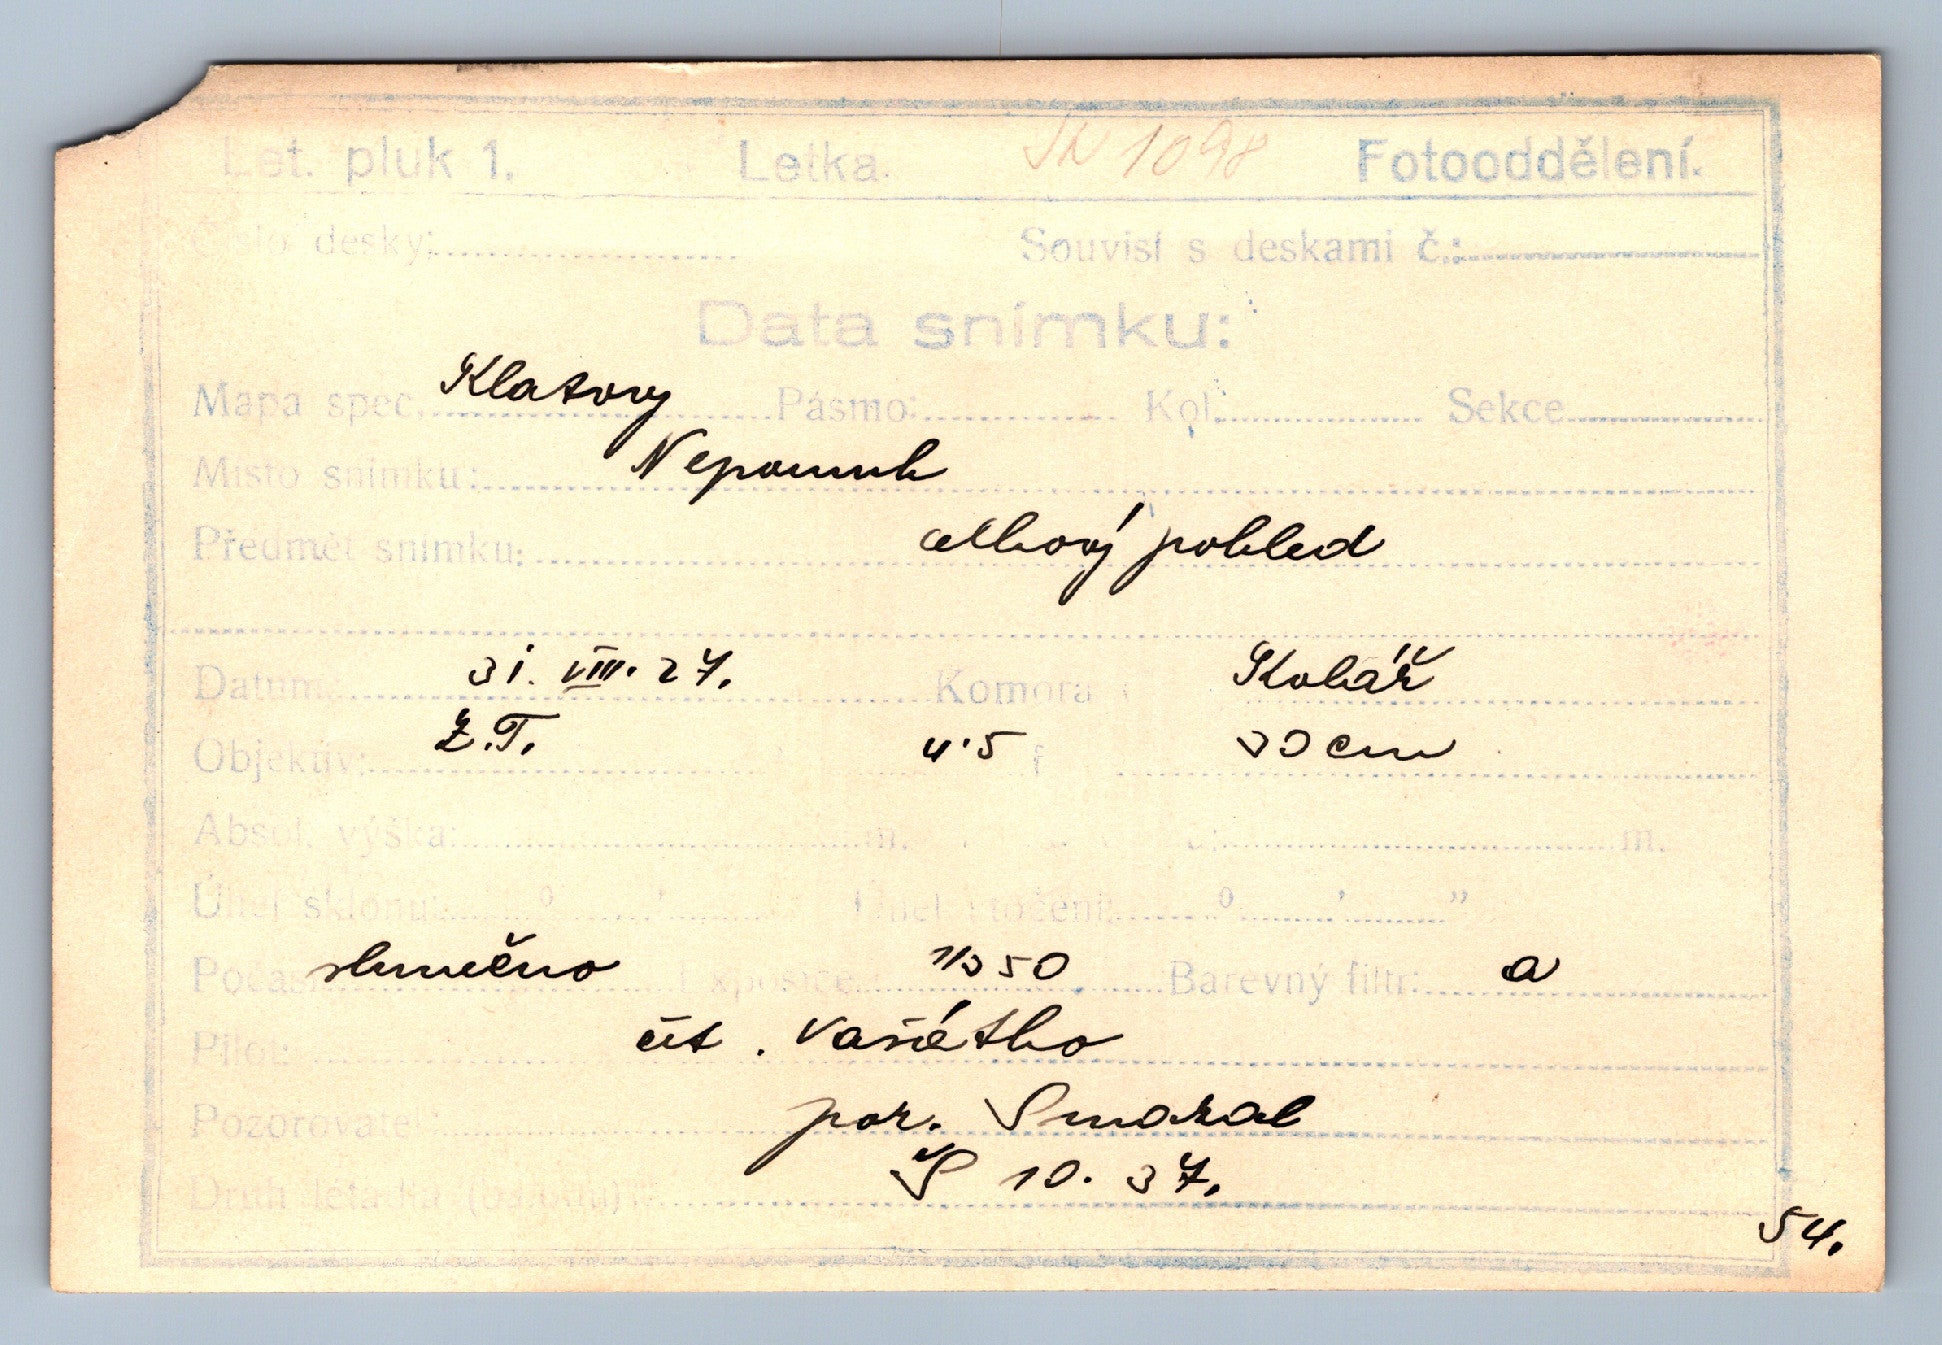 Let. pluk 1. Letka. JN 1098 Fotooddělení.
Číslo desky: Souvisí s deskami č.:
Data snímku:
Mapa spec. Klatovy Pásmo: Kol. Sekce
Místo snímku: Nepomuk
Předmět snímku: celkový pohled
Datum: 31. VIII. 27. Komora Kolář
Objektiv: Z.T. 4·5 f 30 cm
Absol. výška: m. m.
Úhel sklonu: ° ' Úhel stočení: ° ' "
Počasí slunečno Exposice 1/350 Barevný filtr: a
Pilot:
Pozorovatel: por. Smaral
Druh letadla Š 10. 37.
54.